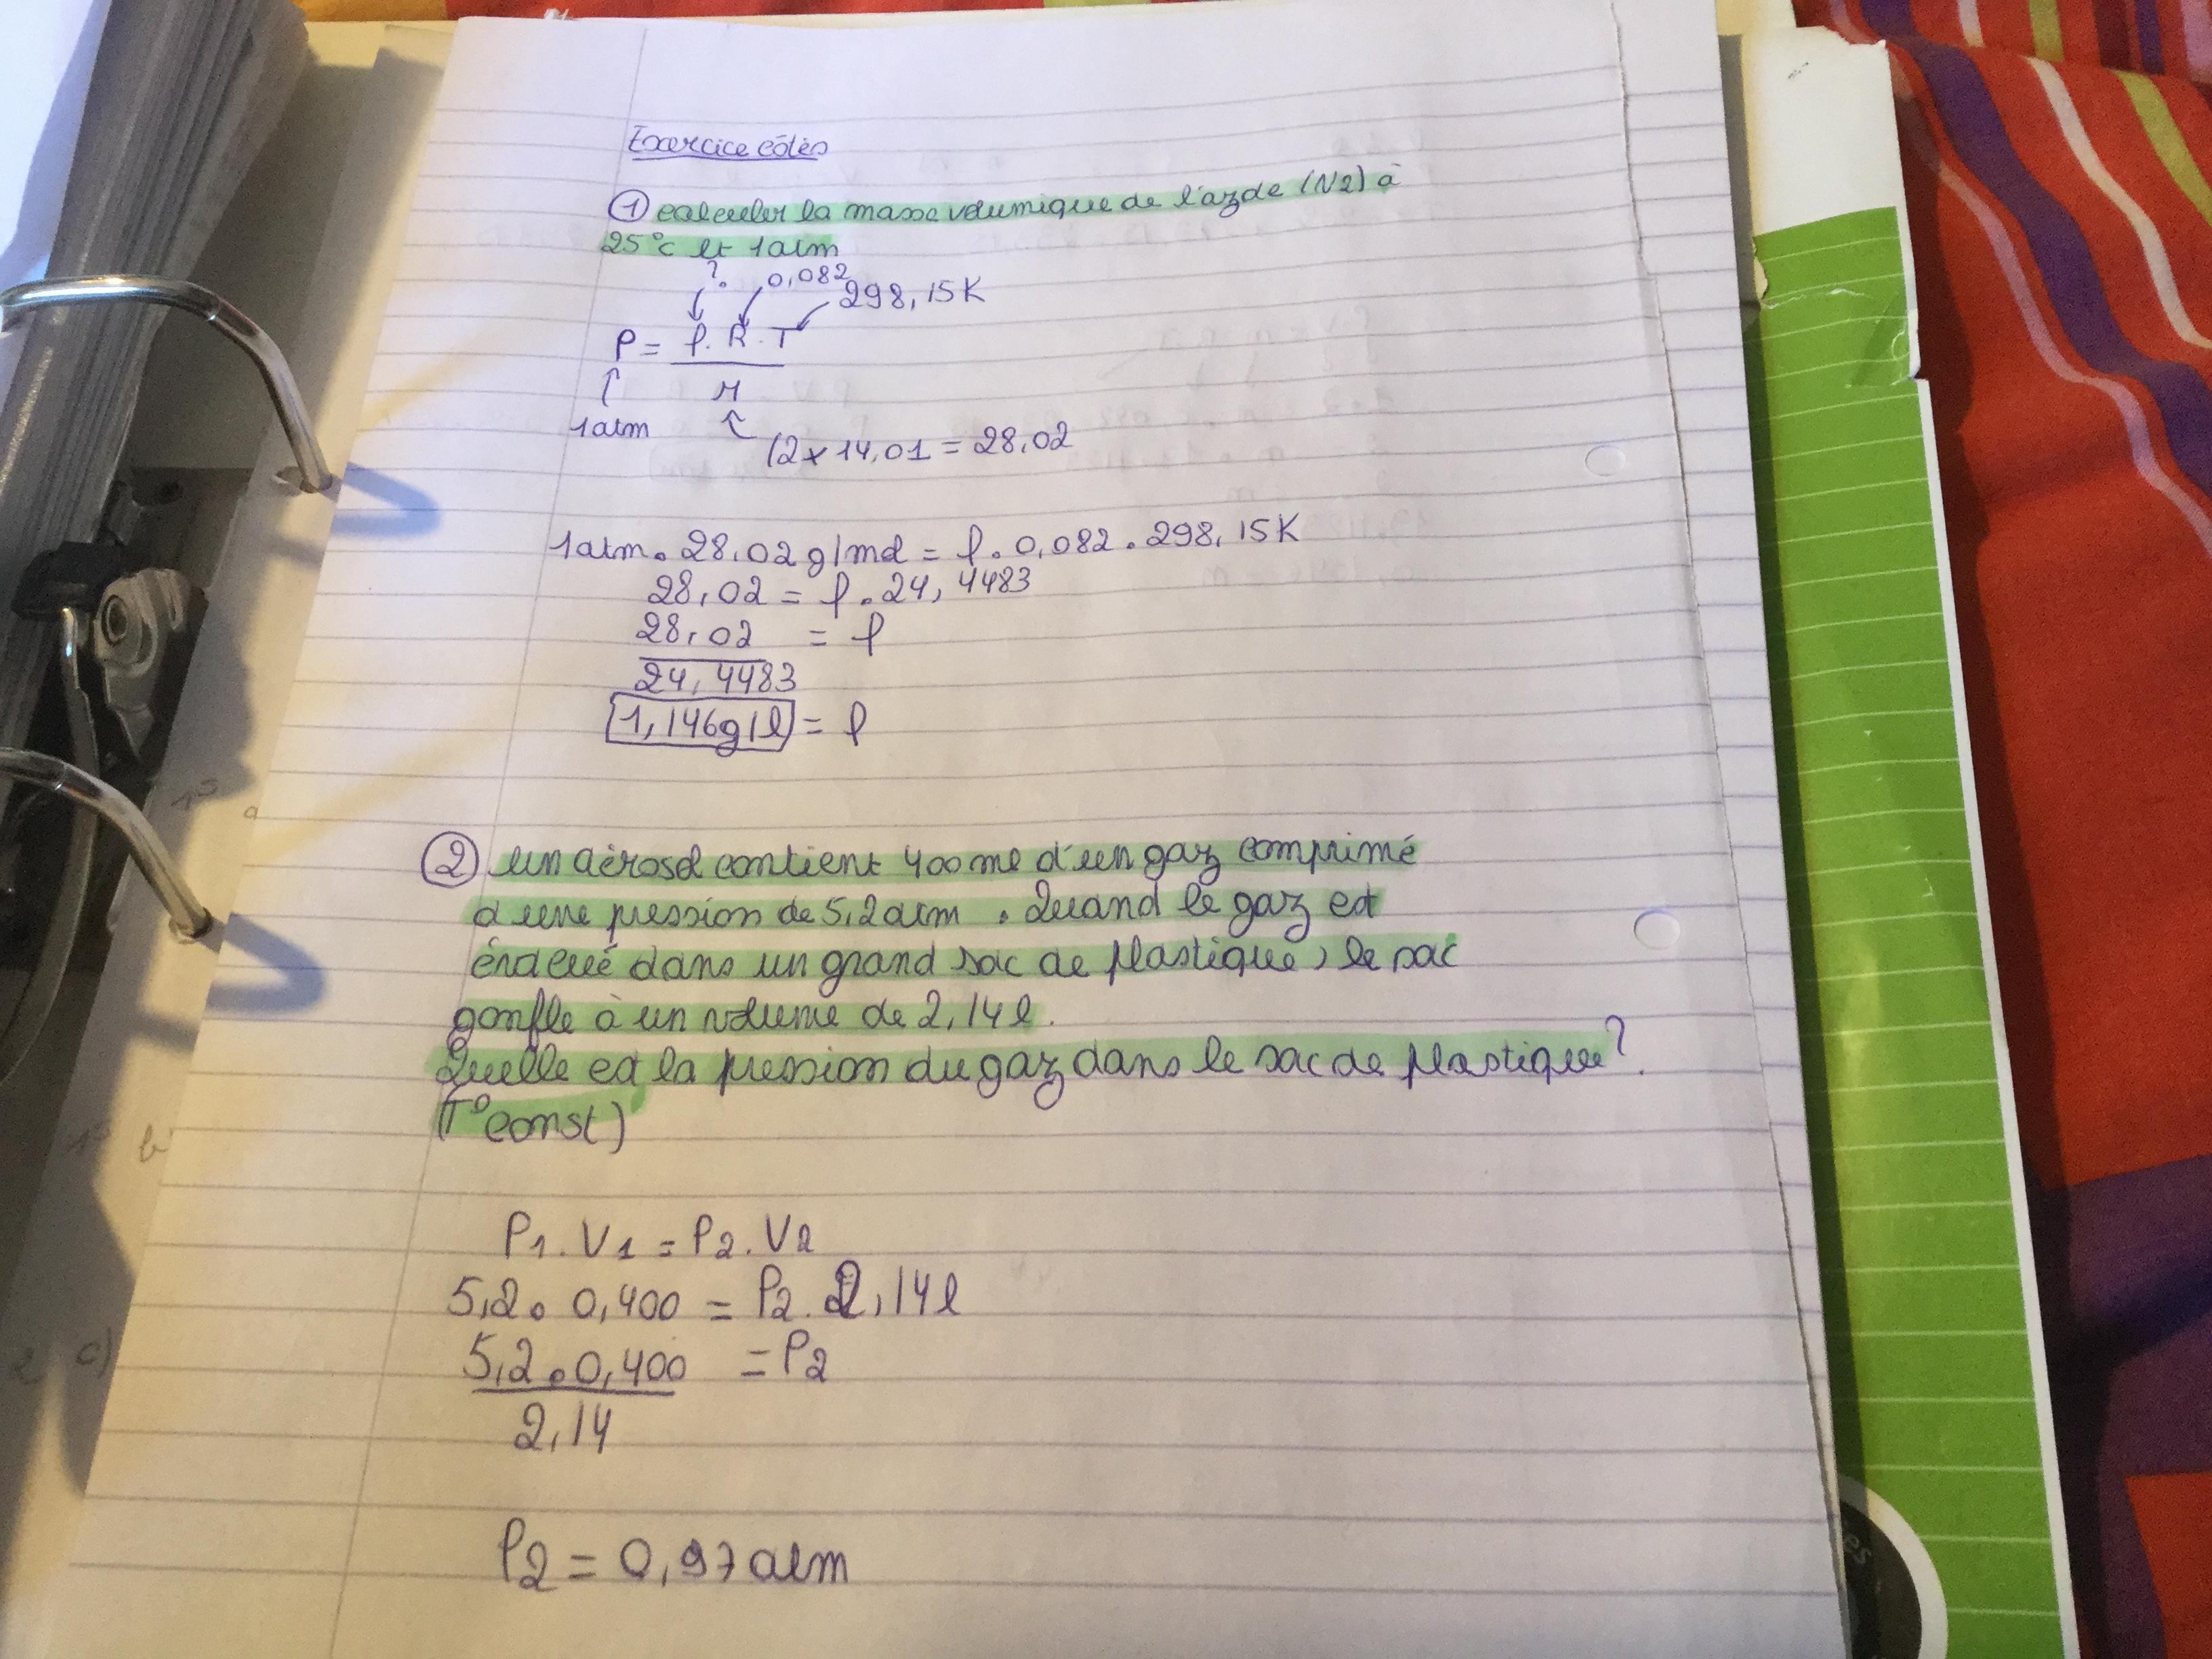 Exercice côtés
① calculer la masse volumique de l'azote (N2) à
25°c et 1atm
? 0,082 298,15K
P = ρ. R. T
M
1atm
(2x14,01 = 28,02
1atm. 28,02g/mol = ρ. 0,082. 298,15K
28,02 = ρ. 24,4483
28,02 = ρ
24,4483
1,146g/l = ρ
② un aérosol contient 400ml d'un gaz comprimé
d'une pression de 5,2atm. Quand le gaz est
évacué dans un grand sac de plastique, le sac
gonfle à un volume de 2,14l.
Quelle est la pression du gaz dans le sac de plastique?
(T° const)
P1. V1 = P2. V2
5,2. 0,400 = P2. 2,14l
5,2. 0,400 = P2
2,14
P2 = 0,97atm